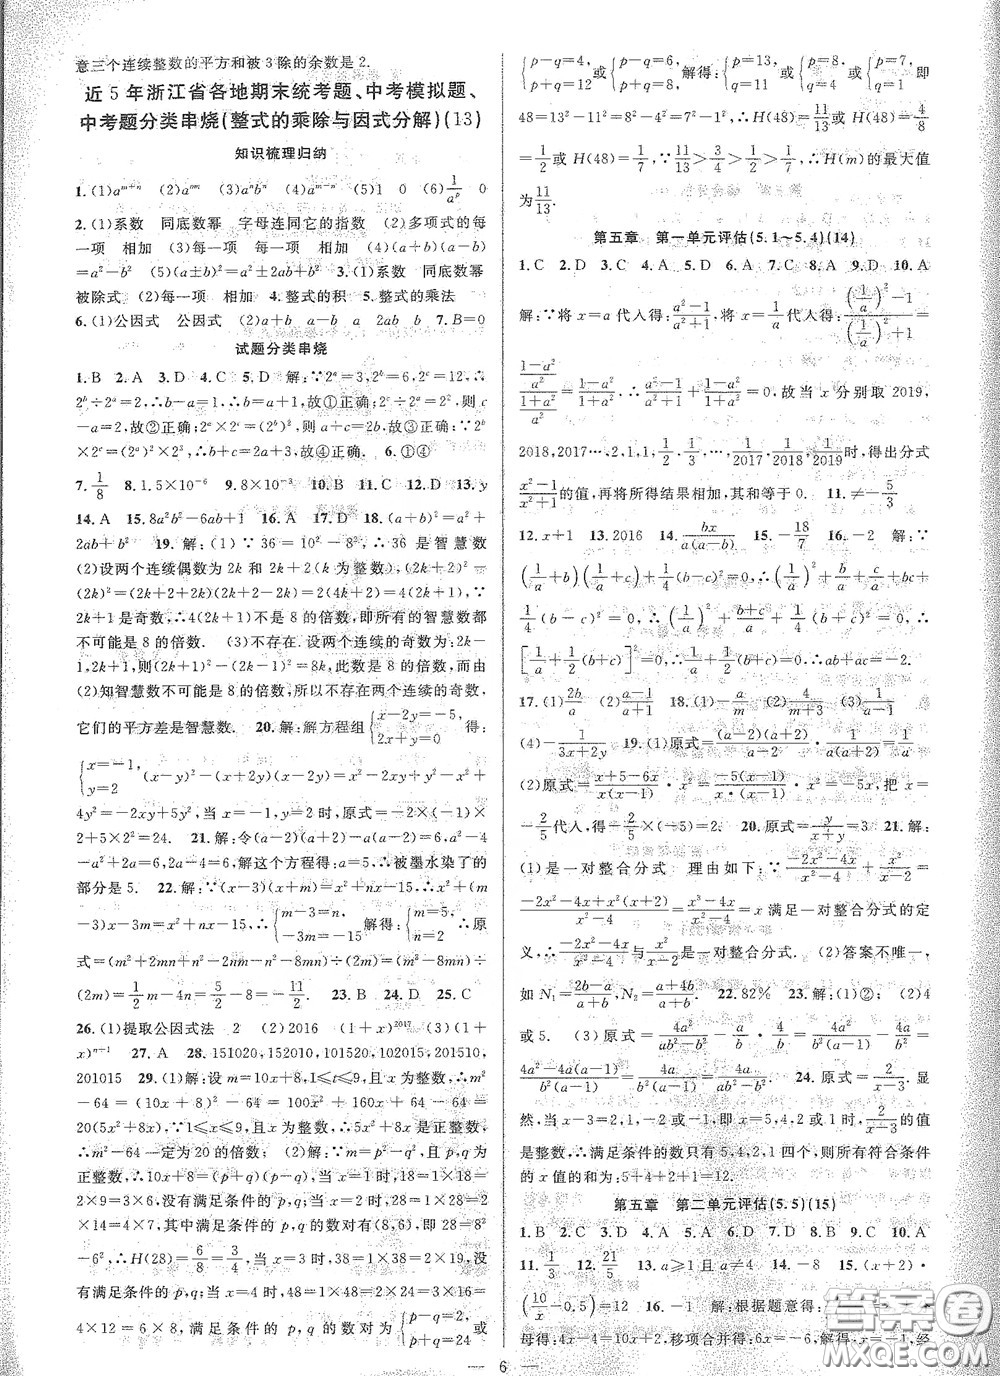 意三个连续整数的平方和被3除的余数是2.
近5年浙江省各地期末统考题、中考模拟题、
中考题分类串烧(整式的乘除与因式分解)(13)
知识梳理归纳
1.(1)aᵐ⁺ⁿ (2)aᵐⁿ (3)aⁿbⁿ (4)aᵐ⁻ⁿ (5)1 0 (6)1/aᵖ 0
2.(1)系数 同底数幂 字母连同它的指数 (2)多项式的每
一项 相加 (3)每一项 每一项 相加 (4)(a+b)(a-b)
=a²-b² (5)(a±b)²=a²±2ab+b² 3.(1)系数 同底数幂
被除式 (2)每一项 相加 4.整式的积 5.整式的乘法
6.(1)公因式 公因式 (2)a+b a-b a (3)a±b 7.B=0
试题分类串烧
1.B 2.A 3.D 4.C 5.D 解:∵2ᵃ=3,2ᵇ=6,2ᶜ=12,∴
2ᵇ÷2ᵃ=2,∴b-a=1,故①正确;2ᶜ÷2ᵇ=2,则c-b=1,故
②正确;2ᵃ×2ᶜ=(2ᵇ)²,则a+c=2b,故③正确;∵2ᵇ
×2ᶜ=(2ᵃ)²×2³,∴b+c=2a+3,故④正确. 6.①④
7.1/8 8.1.5×10⁻⁶ 9.8×10⁻³ 10.B 11.C 12.D 13.y
14.A 15.8a²b²-6ab+1 16.A 17.D 18.(a+b)²=a²+
2ab+b² 19.解:(1)∵36=10²-8²,∴36是智慧数
(2)设两个连续偶数为2k和2k+2(k为整数),∵(2k+2)²-
(2k)²=(2k+2+2k)(2k+2-2k)=2(4k+2)=4(2k+1),∵
2k+1是奇数,∴4(2k+1)不是8的倍数,即所有的智慧数都
不可能是8的倍数. (3)不存在.设两个连续的奇数为:2k-
1,2k+1,则(2k+1)²-(2k-1)²=8k,此数是8的倍数,而由
(2)知智慧数不可能是8的倍数,所以不存在两个连续的奇数,
它们的平方差是智慧数. 20.解:解方程组{x-2y=-5, 2x+y=0}得:
{x=-1, y=2}(x-y)²-(x+2y)(x-2y)=x²-2xy+y²-x²+
4y²=-2xy+5y²,当x=-1,y=2时,原式=-2×(-1)×
2+5×2²=24. 21.解:令(a-2)(a+2)-a(a-●)=a²-4
-a²+a●=a●-4,解这个方程得:a=5,∴被墨水染了的
部分是5. 22.解:∵(x-3)(x+m)=x²+nx-15,∴x²+(m
-3)x-3m=x²+nx-15,∴{m-3=n, -3m=-15}解得:{m=5, n=2}∴原
式=(m²+2mn+n²-2mn-n²-8mn)÷(2m)=(m²-8mn)÷
(2m)=1/2m-4n=5/2-8=-11/2. 23.B 24.D 25.C
26.(1)提取公因式法 2 (2)2016 (1+x)²⁰¹⁷ (3)(1+
x)ⁿ⁺¹ 27.A 28.151020,152010,101520,102015,201510,
201015 29.(1)解:设m=10x+8,1≤t≤9,且x为整数,∴m²
-64=(10x+8)²-64=100x²+160x+64-64=
20(5x²+8x),∵1≤x≤9,且x为整数,∴5x²+8x是正整数,
∴m²-64一定为20的倍数; (2)解:∵m=p²-q²,且p,q为
正整数,∴10x+8=(p+q)(p-q),当x=1时,18=1×18=
2×9=3×6,没有满足条件的p,q;当x=2时,28=1×28=
2×14=4×7,其中满足条件的p,q的数对有(8,6),即28=8²
-6²,∴H(28)=6/8=3/4;当x=3时,38=1×38=2×19,没
有满足条件的p,q;当x=4时,48=1×48=2×24=3×16=
4×12=6×8,满足条件的p,q的数对为{p-q=2, p+q=24}或
{p-q=4, p+q=12}或{p-q=6, p+q=8}解得:{p=13, q=11}或{p=8, q=4}或{p=7, q=1}即
48=13²-11²=8²-4²=7²-1²,∴H(48)=11/13或H(48)=4/8=
1/2或H(48)=1/7,∵11/13>3/4>1/2>1/7,∴H(m)的最大值
为11/13.
第五章 第一单元评估(5.1~5.4)(14)
1.C 2.D 3.D 4.A 5.D 6.A 7.C 8.A 9.D 10.A
解:∵将x=a代入得:(a²-1)/(a²+1),将x=1/a代入得:((1/a)²-1)/((1/a)²+1)=
((1-a²)/a²)/((1+a²)/a²)=(1-a²)/(1+a²),∴(a²-1)/(a²+1)+(1-a²)/(1+a²)=0.故当x分别取2019,
2018,2017…,2,1,1,1/2,1/3,…,1/2017,1/2018,1/2019时,得出分式
(x²-1)/(x²+1)的值,再将所得结果相加,其和等于0. 11.≠-5/3
12.x+1 13.2016 14.bx/(a(a-b)) 15.-18/7 16.-2 解:∵
(1/a+b)(1/a+c)=(1/a)²+(b+c)/a+bc,∴(1/a)²+(b+c)/a+bc=
1/4(b-c)²=0,∴(1/a)²+(b+c)/a+1/4(b+c)²=0,∴
[1/a+1/2(b+c)]²=0,∴1/a+1/2(b+c)=0,∴ab+ac=-2.
17.(1)2b/a (2)(a-1)/(a+1) 18.(1)-a/m (2)m/4 (3)(a+1)/(a-1)
(4)-2y/(3x+2y) 19.(1)原式=(a-2)(a+2)/(a-2)²=(a+2)/(a-2)
(2)原式=(x+5-6x)/(x(x-1))=-5(x-1)/(x·(x-1))=-5/x,把x=
-2/5代入,得=-2/5×5/4×8=2. 20.原式=y/(x+y)=2/3 21.解:
(1)是一对整合分式 理由如下:∵(-2x²-4x)/(x²-4)+x²/(x-2)=
(-2x²-4x+x²(x+2))/(x²-4)=(x³-4x)/(x²-4)=x满足一对整合分式的定
义,∴(-2x²-4x)/(x²-4)与x²/(x-2)是一对整合分式. (2)答案不唯一,
如N₁=(2b-a)/(a+b),N₂=(a+4b)/(a+b). 22.82% 23.解:(1)②; (2)4
或5. (3)原式=4a²/(ab²-b³)-a/b²·4/b=4a²/(b²(a-b))-4a/b²=
(4a²-4a(a-b))/(b²(a-b))=4ab/(b²(a-b))=4a/(ab-b²) 24.原式=2/(x-3).显
然,当x-3=2,1,-2或-1,即x=5,4,2或1时,2/(x-3)的值
是整数,∴满足条件的数只有5,4,2,1四个,则所有符合条件
的x值的和为:5+4+2+1=12.
第五章 第二单元评估(5.5)(15)
1.B 2.D 3.C 4.D 5.B 6.C 7.D 8.B 9.C 10.A
11.1/3 12.21/5 13.a≥1且a≠4 14.-8 15.(x+2)
(10/x-0.5)=12 16.-1 解:根据题意得:
母得:4x-4=10x+2,移项合并得:6x=-6,解得:x=-1,经
答案圈
6